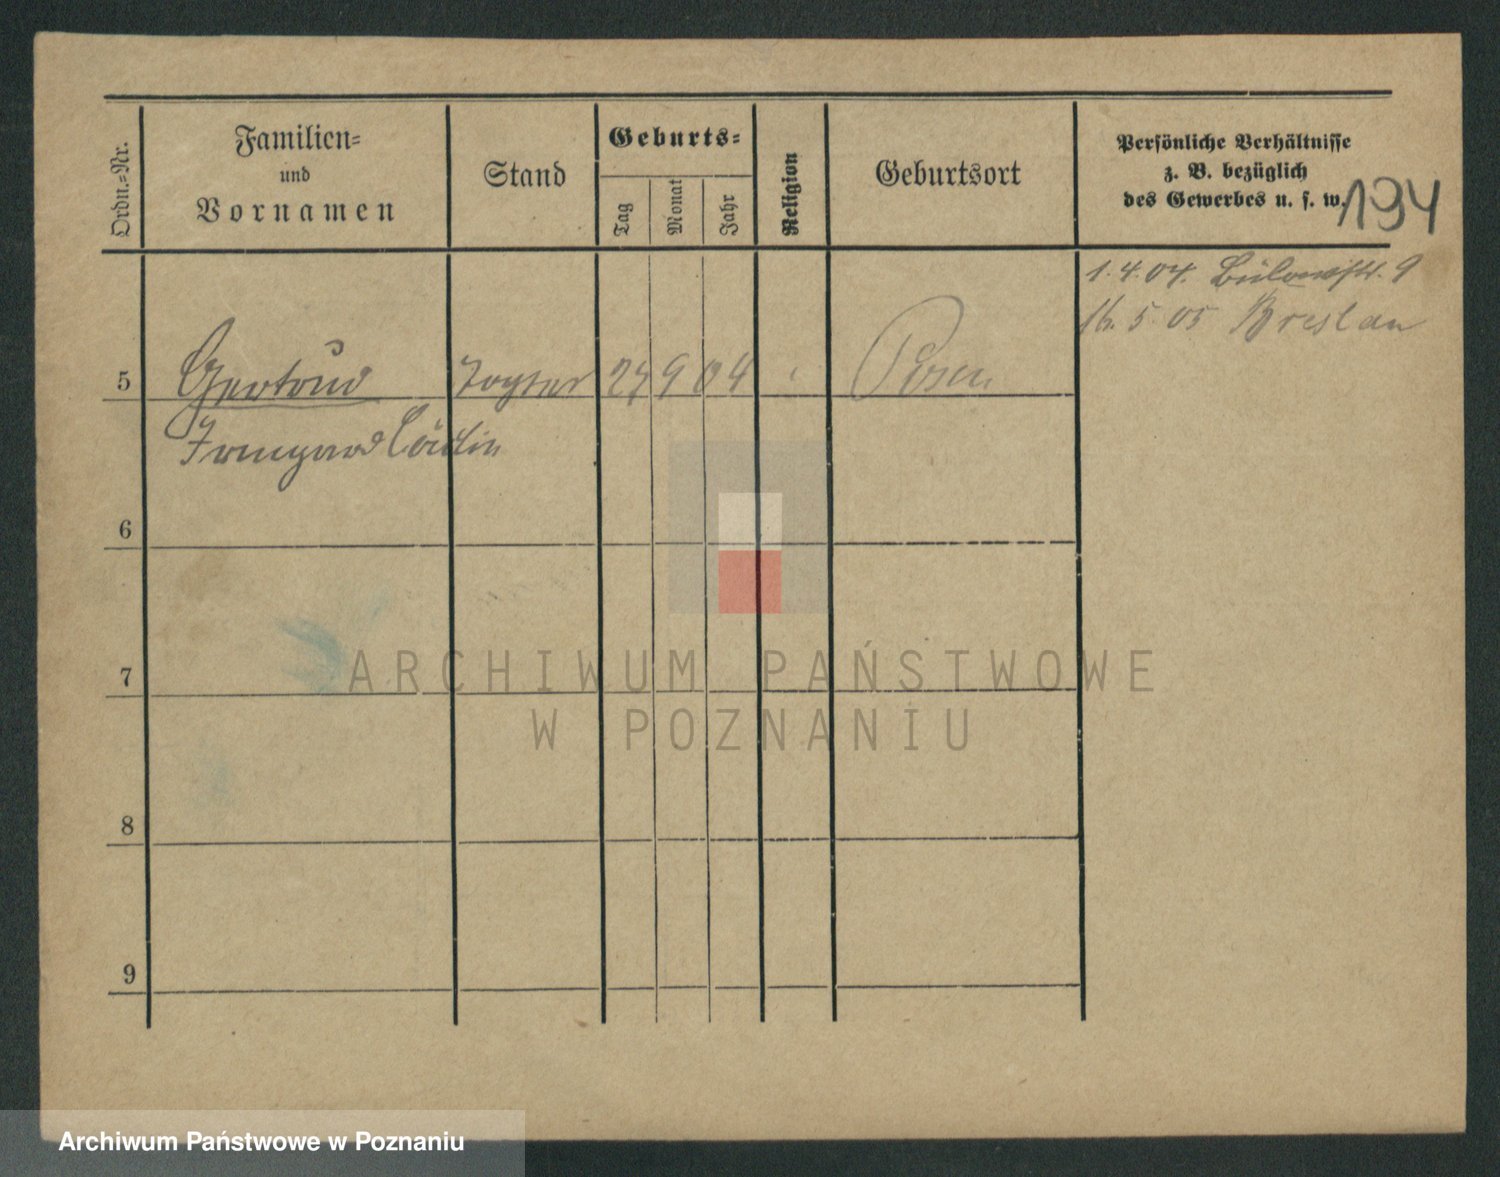 Ordn.-Nr.
Familien-
und
Vornamen
Stand
Geburts-
Tag
Monat
Jahr
Religion
Geburtsort
Persönliche Verhältnisse
z. B. bezüglich
des Gewerbes u. s. w.
194
1.4.04. Bülowstr. 9
16. 5 05 Breslau
5 Gertrud Tochter 9 04 Posen
Irmgard
6
7
8
9
ARCHIWUM PAŃSTWOWE
W POZNANIU
Archiwum Państwowe w Poznaniu